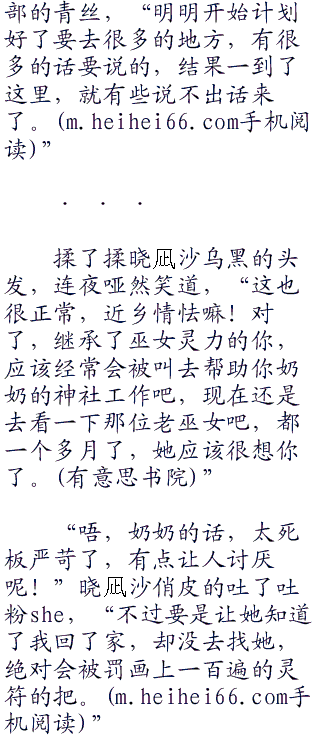 部的青丝，“明明开始计划
好了要去很多的地方，有很
多的话要说的，结果一到了
这里，就有些说不出话来
了。(m.heihei66.com手机阅
读)”
. . .
揉了揉晓凪沙乌黑的头
发，连夜哑然笑道，“这也
很正常，近乡情怯嘛！对
了，继承了巫女灵力的你，
应该经常会被叫去帮助你奶
奶的神社工作吧，现在还是
去看一下那位老巫女吧，都
一个多月了，她应该很想你
了。(有意思书院)”
“唔，奶奶的话，太死
板严苛了，有点让人讨厌
呢！”晓凪沙俏皮的吐了吐
粉she，“不过要是让她知道
了我回了家，却没去找她，
绝对会被罚画上一百遍的灵
符的把。(m.heihei66.com手
机阅读)”